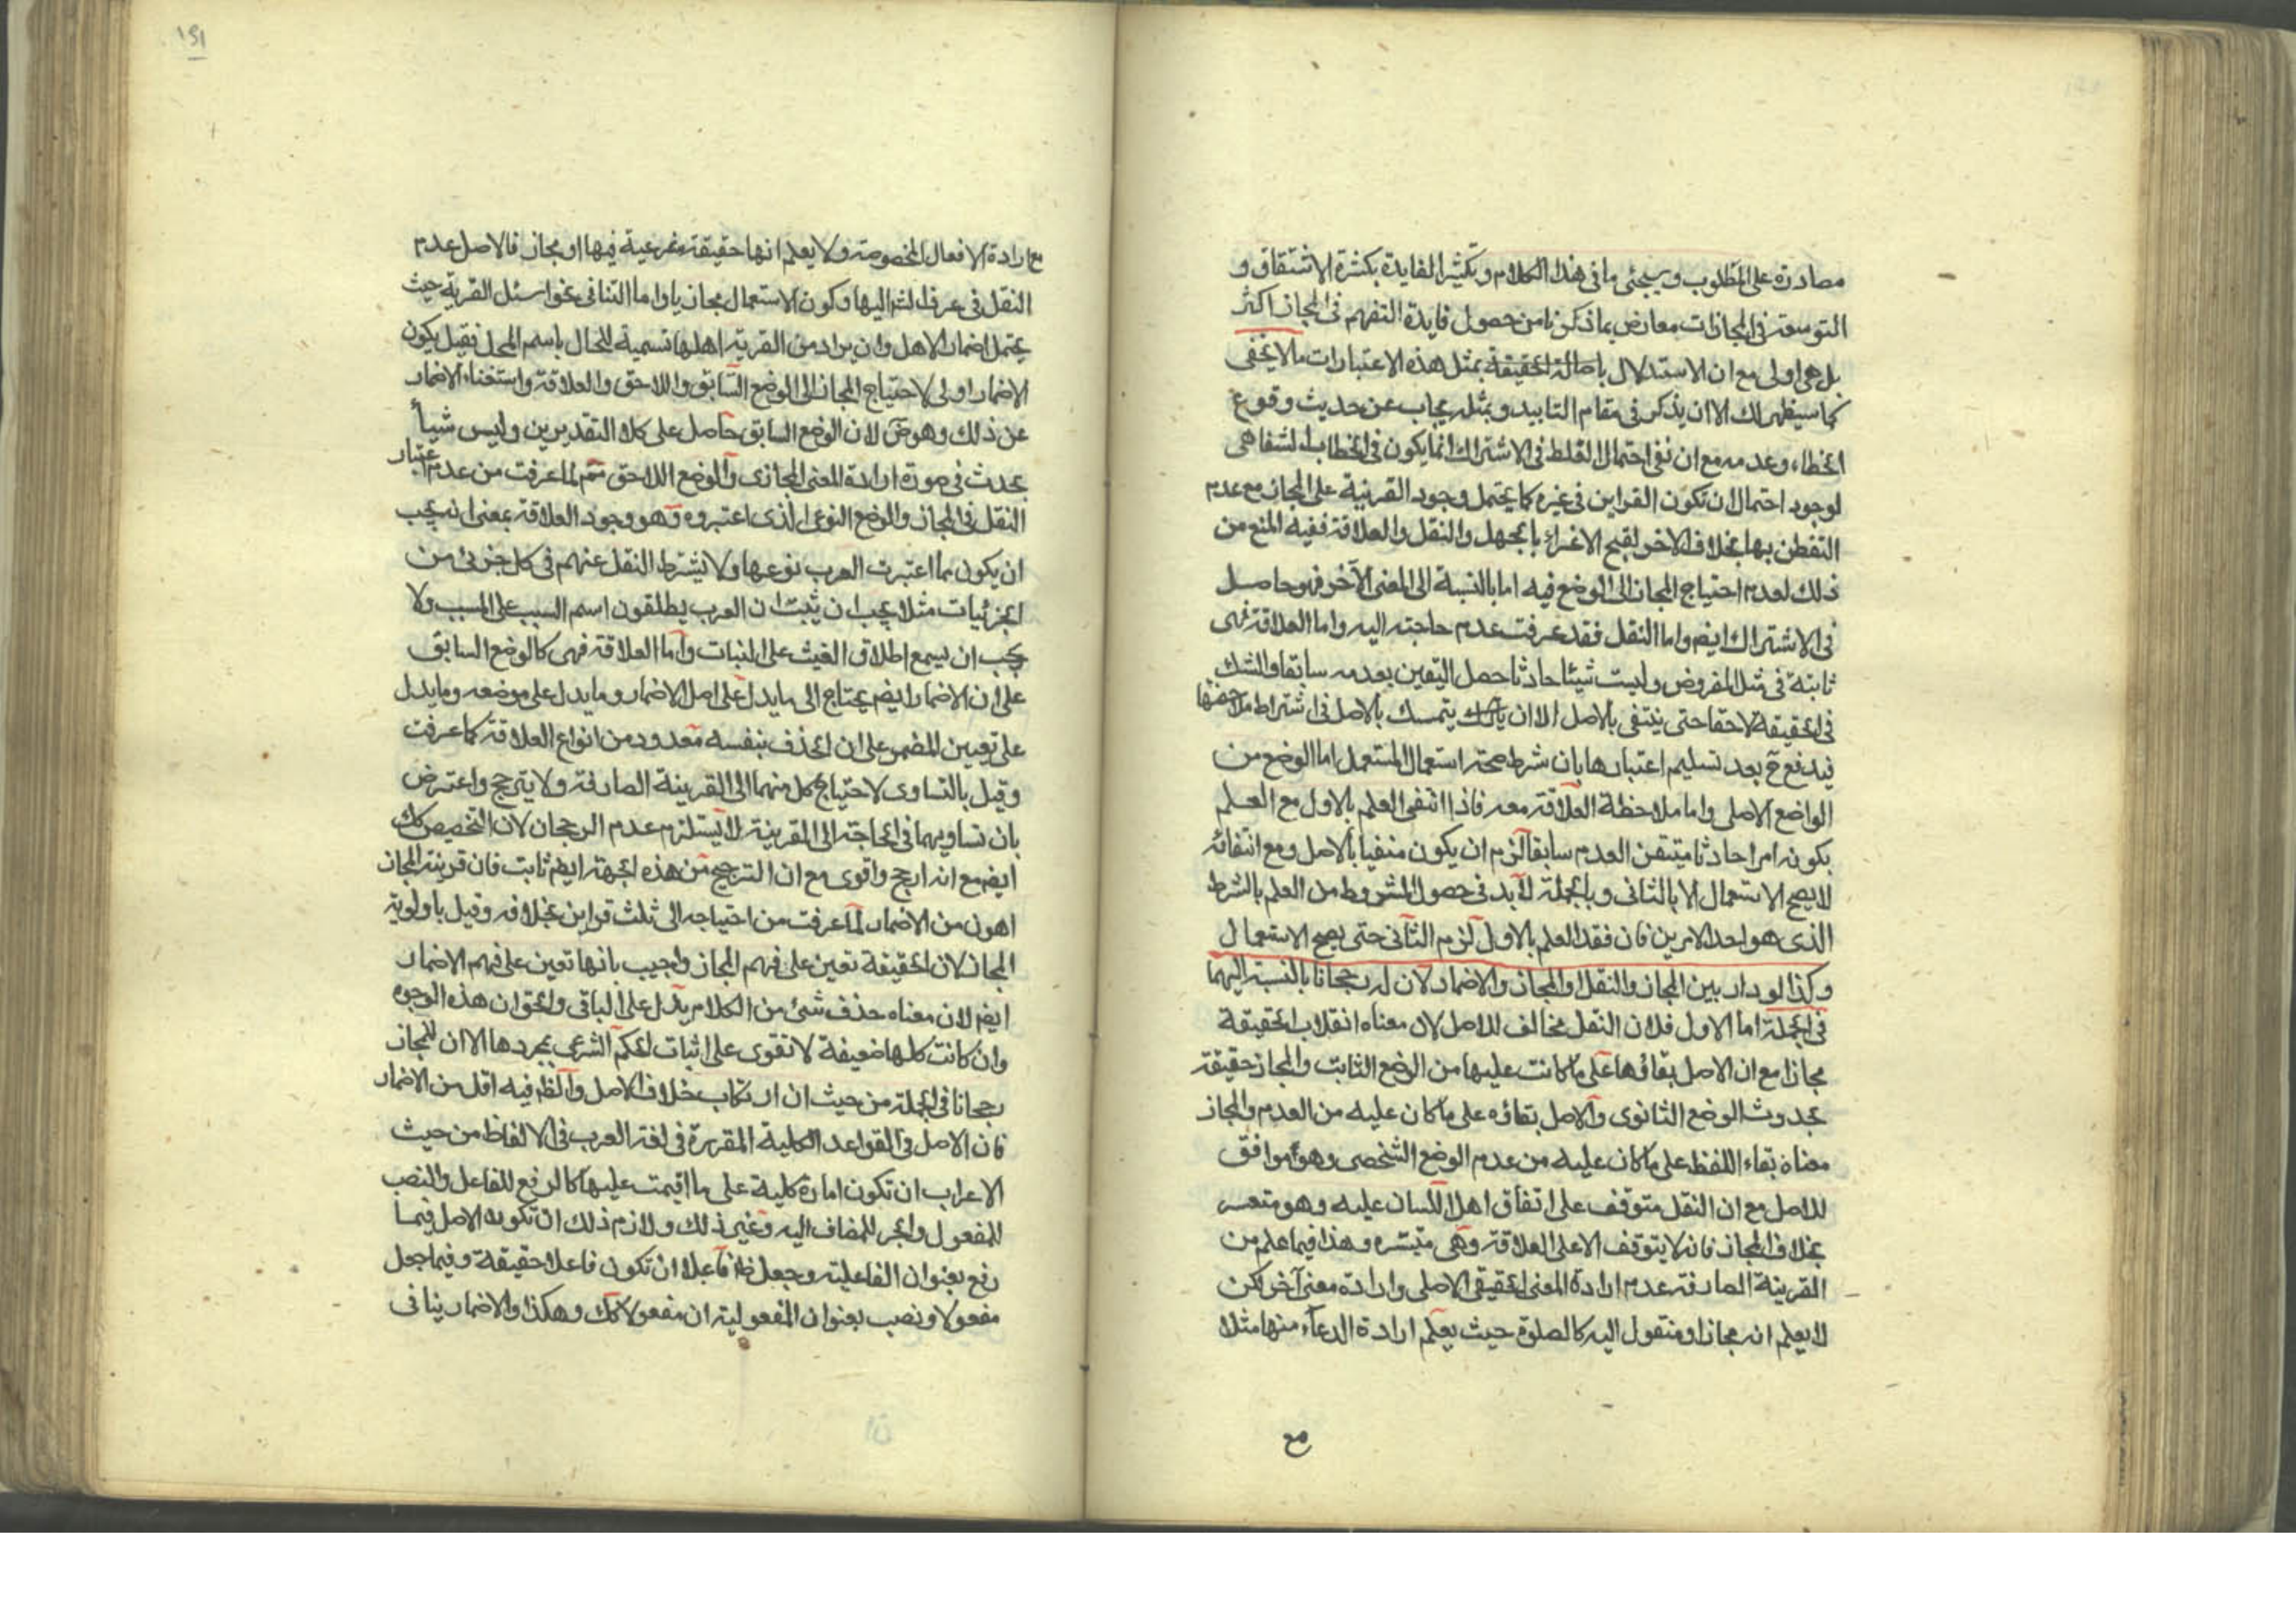 مصادرة على المطلوب وسيجئ ما فى هذا الكلام وتكثير الفايدة بكثرة الاشتقاق و
التوسعة فى المجازات معارض بما ذكرنا من حصول فايدة التفهم فى المجاز اكثر
بل هى اولى مع ان الاستدلال باصالة الحقيقة بمثل هذه الاعتبارات ما لا يخفى
كما سيظهر لك الا ان يذكر فى مقام التاييد وبمثله يجاب عن حديث وقوع
الخطاء وعدمه مع ان نفى احتمال الغلط فى الاشتراك انما يكون فى الخطاب الشفاهى
لوجود احتمال ان تكون القراين فى غيره كما يحتمل وجود القرينة على المجاز مع عدم
التفطن بها بخلاف الاخر لقبح الاغراء بالجهل والنقل والعلاقة ففيه المنع من
ذلك لعدم احتياج المجاز الى الوضع فيه اما بالنسبة الى المعنى الآخر فهو حاصل
فى الاشتراك ايضم واما النقل فقد عرفت عدم حاجته اليه واما العلاقة فهى
ثابتة فى مثل المفروض وليست شيئا حادثا حصل اليقين بعدمه سابقا والشك
فى الحقيقة لاحقا حتى ينتفى بالاصل الا ان يتمسك بالاصل فى اشتراط ملاحظتها
فيدفع ح بعد تسليم اعتبارها بان شرط صحة استعمال المستعمل اما الوضع من
الواضع الاصلى واما ملاحظة العلاقة معه فاذا انتفى العلم بالاول مع العلم
بكونه امرا حادثا متيقن العدم سابقا لزم ان يكون منفيا بالاصل ومع انتفائه
لا يصح الاستعمال الا بالثانى وبالجملة لا بد فى حصول المشروط من العلم بالشرط
الذى هو احد الامرين فان فقد العلم بالاول لزم الثانى حتى يصح الاستعمال
وكذا لو دار بين المجاز والنقل او المجاز والاضمار لان له رجحانا بالنسبة اليهما
فى الجملة اما الاول فلان النقل مخالف للاصل لان معناه انقلاب الحقيقة
مجازا مع ان الاصل بقاؤها على ما كانت عليها من الوضع الثابت والمجاز حقيقة
بحدوث الوضع الثانوى والاصل بقاؤه على ما كان عليه من العدم والمجاز
معناه بقاء اللفظ على ما كان عليه من عدم الوضع الشخصى وهو موافق
للاصل مع ان النقل متوقف على اتفاق اهل اللسان عليه وهو متعسر
بخلاف المجاز فانه لا يتوقف الا على العلاقة وهى متيسره وهذا فيما علم من
القرينة الصارفة عدم ارادة المعنى الحقيقى الاصلى وارادة معنى آخر لكن
لا يعلم انه مجاز او منقول اليه كالصلوة حيث يعلم ارادة الدعاء منها مثلا
مع
١٥١
مع ارادة الافعال المخصوصة ولا يعلم انها حقيقة شرعية فيها او مجاز فالاصل عدم
النقل فى عرف الشرع اليها وكون الاستعمال مجازيا واما التنافى نحو اسئل القرية حيث
يحتمل اضمار الاهل وان يراد من القرية اهلها تسمية للحال باسم المحل فقيل يكون
الاضمار اولى لاحتياج المجاز الى الوضع السابق واللاحق والعلاقة واستغناء الاضمار
عن ذلك وهو ض لان الوضع السابق حاصل على كلا التقديرين وليس شيأ
يحدث فى صورة ارادة المعنى المجازى والوضع اللاحق متم لما عرفت من عدم اعتبار
النقل فى المجاز والوضع النوعى الذى اعتبروه وهو وجود العلاقة بمعنى انه يجب
ان يكون مما اعتبرت العرب نوعها ولا يشترط النقل عنهم فى كل جزئى من
الجزئيات مثلا يجب ان يثبت ان العرب يطلقون اسم السبب على المسبب ولا
يجب ان يسمع اطلاق الغيث على النبات واما العلاقة فهى كالوضع السابق
على ان الاضمار ايضم يحتاج الى ما يدل على اصل الاضمار وما يدل على موضعه وما يدل
على تعيين المضمر على ان الحذف بنفسه معدود من انواع العلاقة كما عرفت
وقيل بالتساوى لاحتياج كل منهما الى القرينة الصارفة ولا يترجح واعترض
بان تساويهما فى الحاجة الى القرينة لا يستلزم عدم الرجحان لان التخصيص كك
ايضم مع انه ارجح واقوى مع ان الترجيح من هذه الجهة ايضم ثابت فان قرينة المجاز
اهون من الاضمار لما عرفت من احتياجه الى ثلث قراين بخلافه وقيل باولوية
المجاز لان الحقيقة تعين على فهم المجاز واجيب بانها تعين على فهم الاضمار
ايضم لان معناه حذف شئ من الكلام يدل على الباقى والحق ان هذه الوجوه
وان كانت كلها ضعيفة لا تقوى على اثبات الحكم الشرعى بمجردها الا ان للمجاز
رجحانا فى الجملة من حيث ان ارتكاب خلاف الاصل والظ فيه اقل من الاضمار
فان الاصل فى القواعد الكلية المقررة فى لغة العرب فى الالفاظ من حيث
الاعراب ان تكون امارة كلية على ما اقيمت عليها كالرفع للفاعل والنصب
للمفعول والجر للمضاف اليه وغير ذلك ولازم ذلك ان تكون الاصل فيما
رفع بعنوان الفاعلية وجعل فاعلا ان تكون فاعلا حقيقة وفيما جعل
مفعولا ونصب بعنوان المفعولية ان مفعولا كك وهكذا والاضمار ينافى